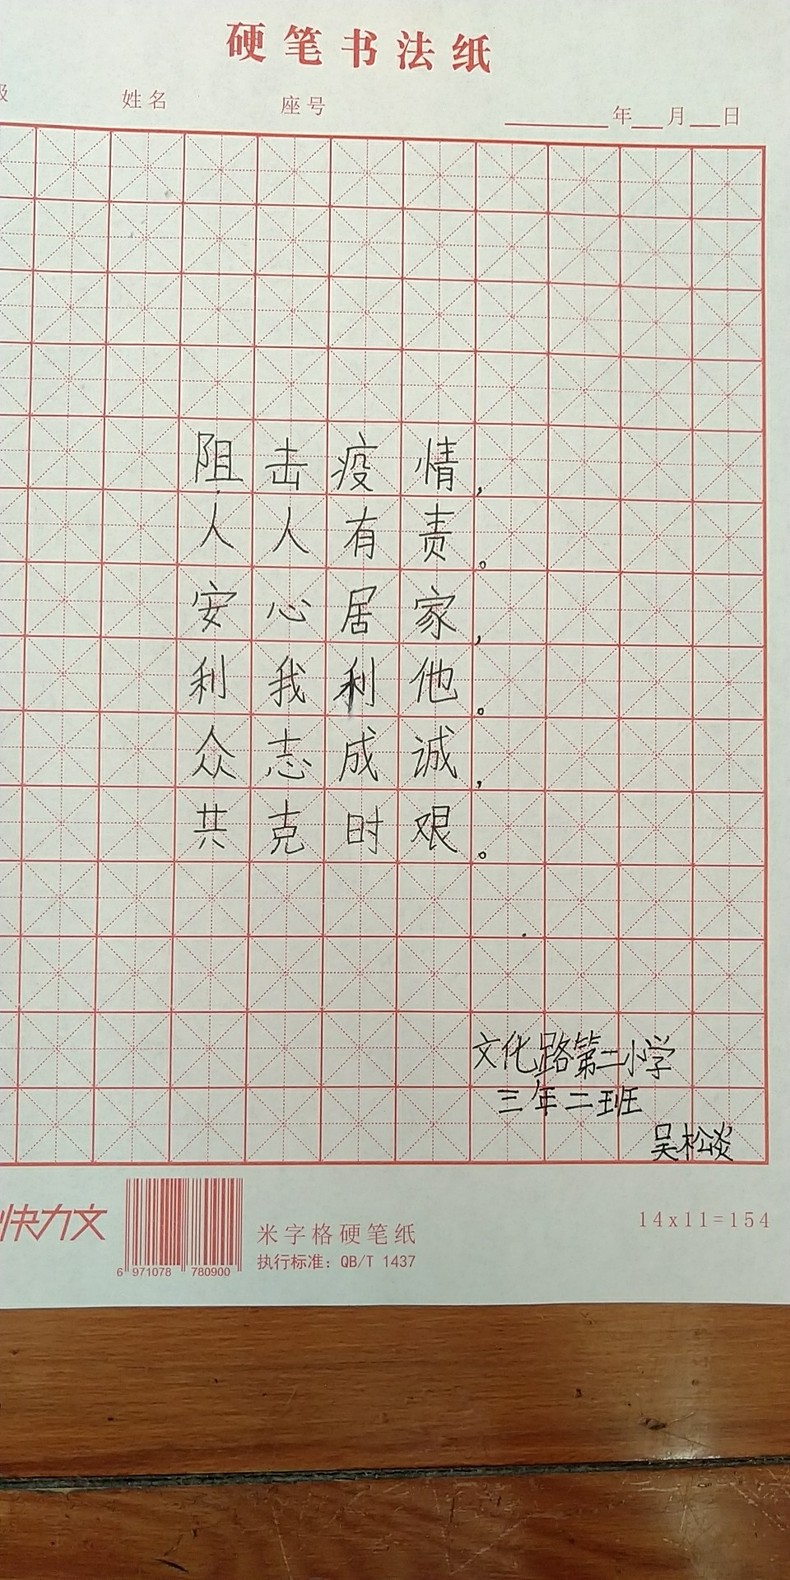 硬笔书法纸
级 姓名 座号 年 月 日
阻击疫情,
人人有责。
安心居家,
利我利他。
众志成诚,
共克时艰。
文化路第二小学
三年二班
吴松炎
快力文
6 971078 780900
米字格硬笔纸
执行标准：QB/T 1437
14x11=154